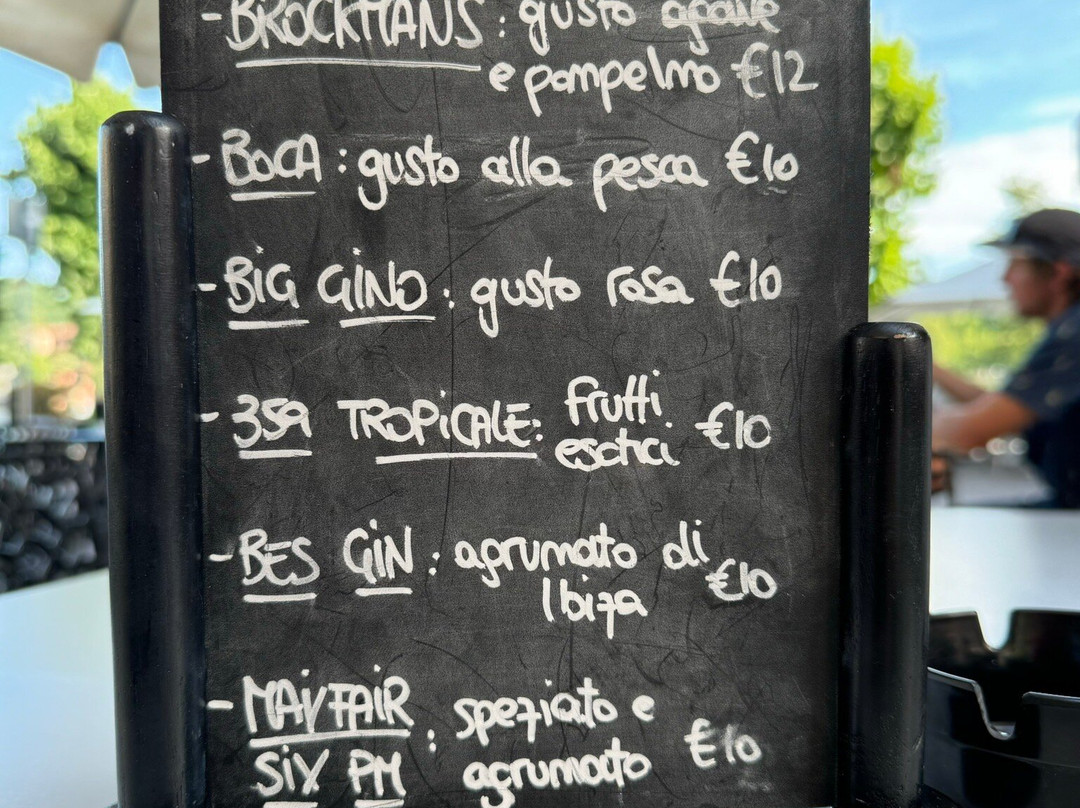 - BROCKMANS : gusto agave
e pompelmo €12
- BOCA : gusto alla pesca €10
- BIG GINO : gusto rosa €10
- 359 TROPICALE: frutti
esotici €10
- BES GIN : agrumato di
Ibiza €10
- MAYFAIR
SIX PM : speziato e
agrumato €10